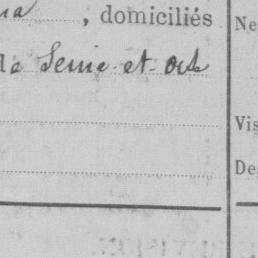 , domiciliés
la Seine et Oise
Ne
Vis
De